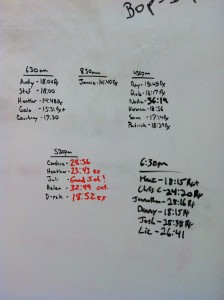 BOP-
630am
Andy - 18:04 Rx
Stef - 18:00
Heather - 14:48 Rx
Gaia - 15:31 Rx
Courtney - 17:30
830am
Jamie - 14:40 Rx
430pm
Ray - 15:45 Rx
Rob - 16:17 Rx
36:19
Karena - 18:56
Sam - 17:34 Rx
Patrick - 18:37 Rx
530pm
Candice - 28:56
Heather - 23:43 Rx
Juli - Good Job!
Helen - 32:49
Derek - 18:52 Rx
6:30pm
- 18:15 Rx
Chris C - 24:20 Rx
Jonathan - 28:16 Rx
Danny - 18:15 Rx
Josh - 28:38 Rx
Liz - 26:41